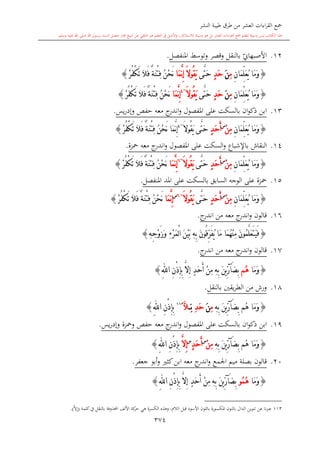 جمع القراءات العشر من طرق طيبة النشر
١٢. الأصبهانيّ بالنقل وقصر وتوسط المنفصل.
﴿ وَمَا يُعَلِّمَانِ مِنَ حَدٍ حَتَّىٰ يَقُولَا إِنَّمَا نَحْنُ فِتْنَةٌ فَلَا تَكْفُرْ ﴾
﴿ وَمَا يُعَلِّمَانِ مِنَ حَدٍ حَتَّىٰ يَقُولَا إِنَّمَا نَحْنُ فِتْنَةٌ فَلَا تَكْفُرْ ﴾
١٣. ابن ذكوان بالسكت على المفصول واندرج معه حفص وإدريس.
﴿ وَمَا يُعَلِّمَانِ مِنْ أَحَدٍ حَتَّىٰ يَقُولَا إِنَّمَا نَحْنُ فِتْنَةٌ فَلَا تَكْفُرْ ﴾
١٤. النقاش بالإشباع والسكت على المفصول واندرج معه حمزة.
﴿ وَمَا يُعَلِّمَانِ مِنْ أَحَدٍ حَتَّىٰ يَقُولَا إِنَّمَا نَحْنُ فِتْنَةٌ فَلَا تَكْفُرْ ﴾
١٥. حمزة على الوجه السابق بالسكت على المد المنفصل.
﴿ وَمَا يُعَلِّمَانِ مِنْ أَحَدٍ حَتَّىٰ يَقُولَا إِنَّمَا نَحْنُ فِتْنَةٌ فَلَا تَكْفُرْ ﴾
١٦. قالون واندرج معه من اندرج.
﴿ فَيَتَعَلَّمُونَ مِنْهُمَا مَا يُفَرِّقُونَ بِهِ بَيْنَ الْمَرْءِ وَزَوْجِهِ ﴾
١٧. قالون واندرج معه من اندرج.
﴿ وَمَا هُم بِضَارِّينَ بِهِ مِنْ أَحَدٍ إِلَّا بِإِذْنِ اللَّهِ ﴾
١٨. ورش من الطريقين بالنقل.
﴿ وَمَا هُم بِضَارِّينَ بِهِ مِنَ حَدٍ لَّا ١١٣ بِإِذْنِ اللَّهِ ﴾
١٩. ابن ذكوان بالسكت على المفصول واندرج معه حفص وحمزة وإدريس.
﴿ وَمَا هُم بِضَارِّينَ بِهِ مِنْ أَحَدٍ إِلَّا بِإِذْنِ اللَّهِ ﴾
٢٠. قالون بصلة ميم الجمع واندرج معه ابن كثير وأبو جعفر.
﴿ وَمَا هُمُو بِضَارِّينَ بِهِ مِنْ أَحَدٍ إِلَّا بِإِذْنِ اللَّهِ ﴾
٣٧٤